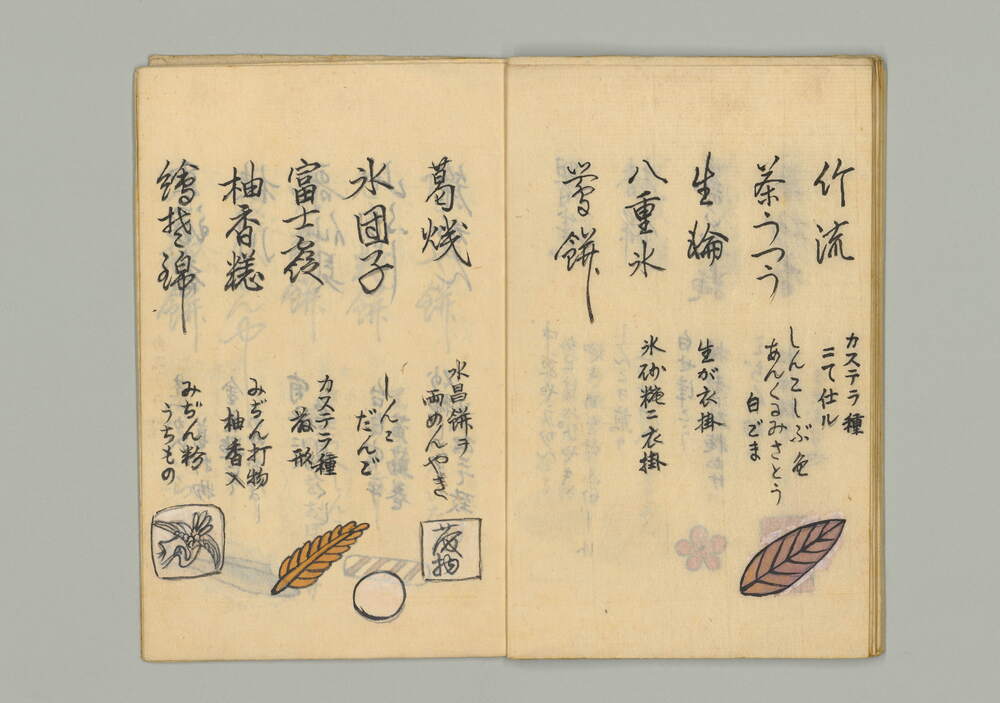 竹流
カステラ種
ニて仕ル
茶うつう
しんこしぶ色
あんくるみさとう
白ごま
生輪
生が衣掛
八重氷
氷砂糖ニ衣掛
鶯餅
葛焼
水昌餅ヲ
両めんやき
氷団子
しんこ
だんご
富士
カステラ種
形
柚香糕
みぢん打物
柚香入
みぢん粉
うちもの